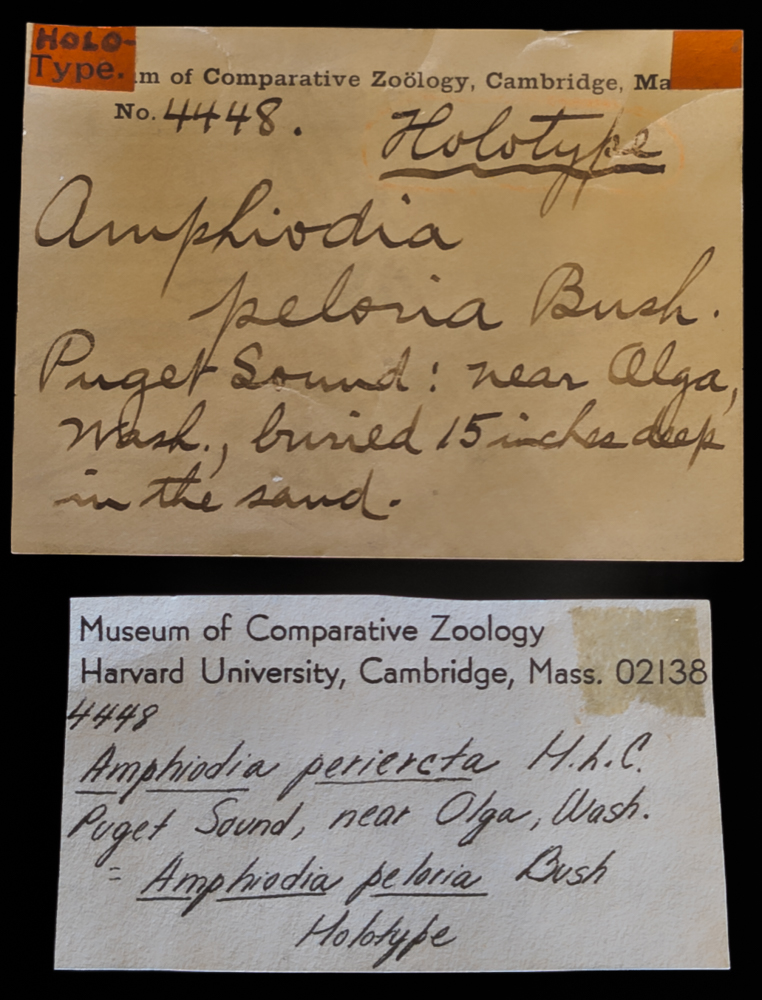 HOLO-
Type.
m of Comparative Zoölogy, Cambridge, Ma
No. 4448.
Holotype
Amphiodia
peloria Bush.
Puget Sound: near Olga,
Wash., buried 15 inches deep
in the sand.
Museum of Comparative Zoology
Harvard University, Cambridge, Mass. 02138
4448
Amphiodia periercta H.L.C.
Puget Sound, near Olga, Wash.
= Amphiodia peloria Bush
Holotype